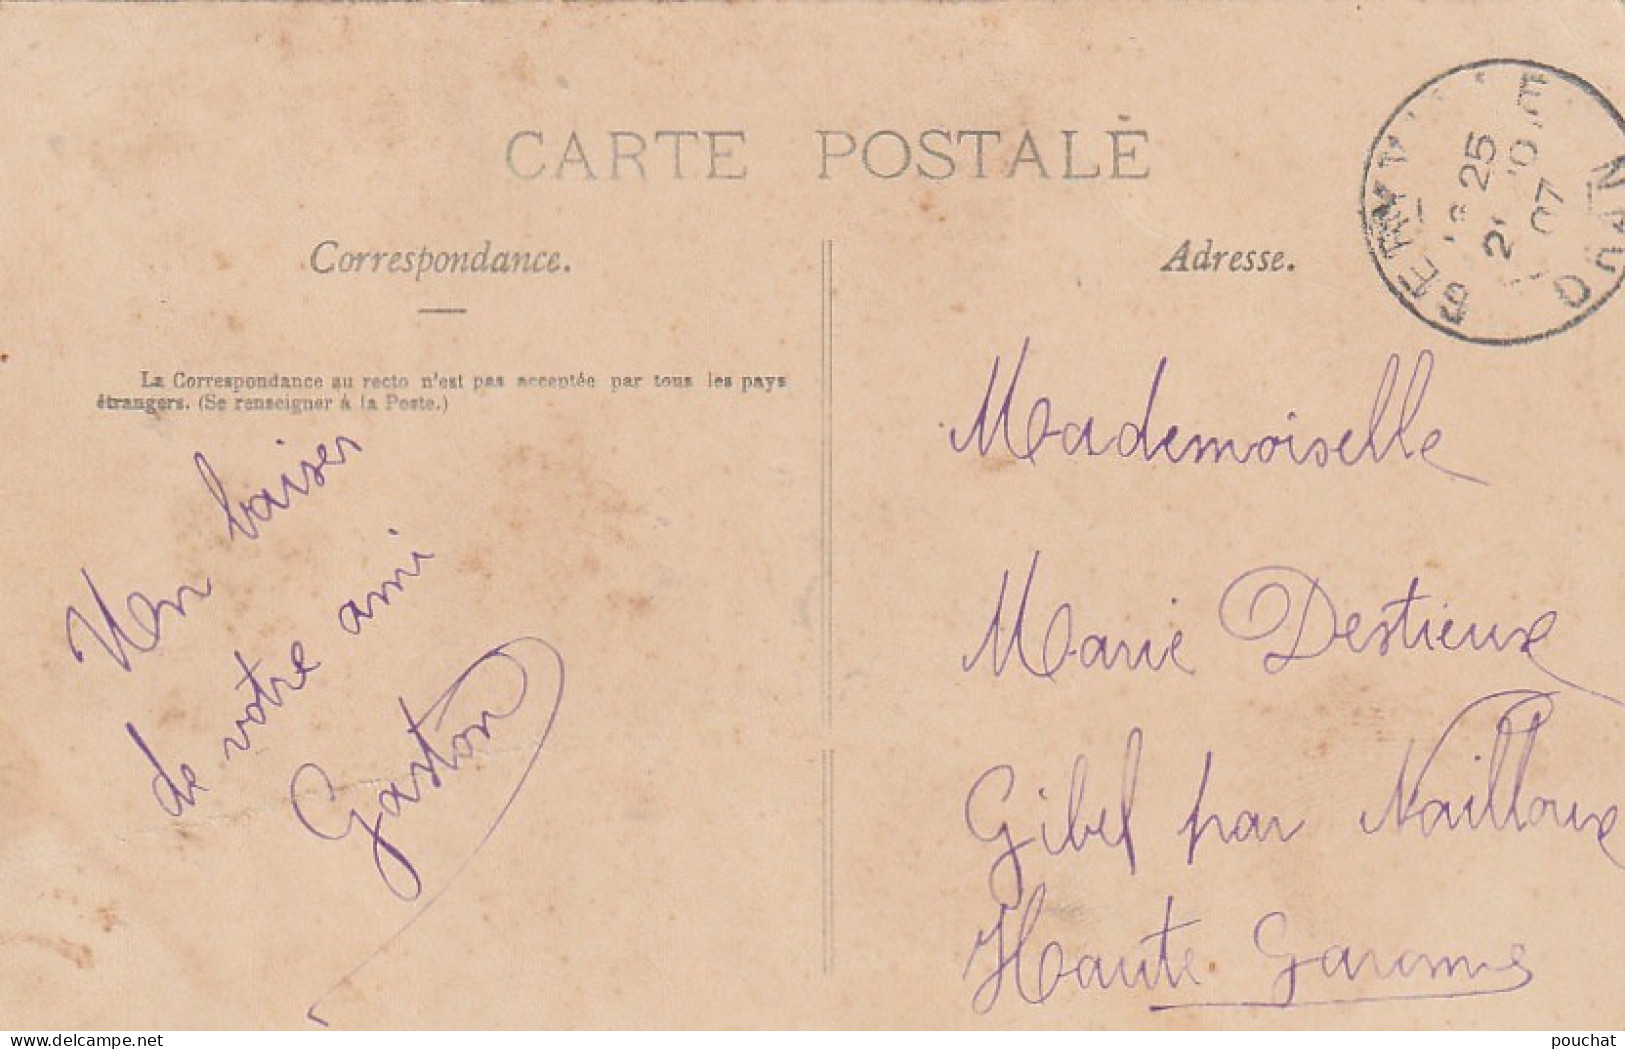 CARTE POSTALE
Correspondance.
Adresse.
La Correspondance au recto n'est pas acceptée par tous les pays
étrangers. (Se renseigner à la Poste.)
Un baiser
de votre ami
Gaston
Mademoiselle
Marie Destieux
Gibel par Nailloux
Haute Garonne
25
07
ORAN
www.delcampe.net
pouchat